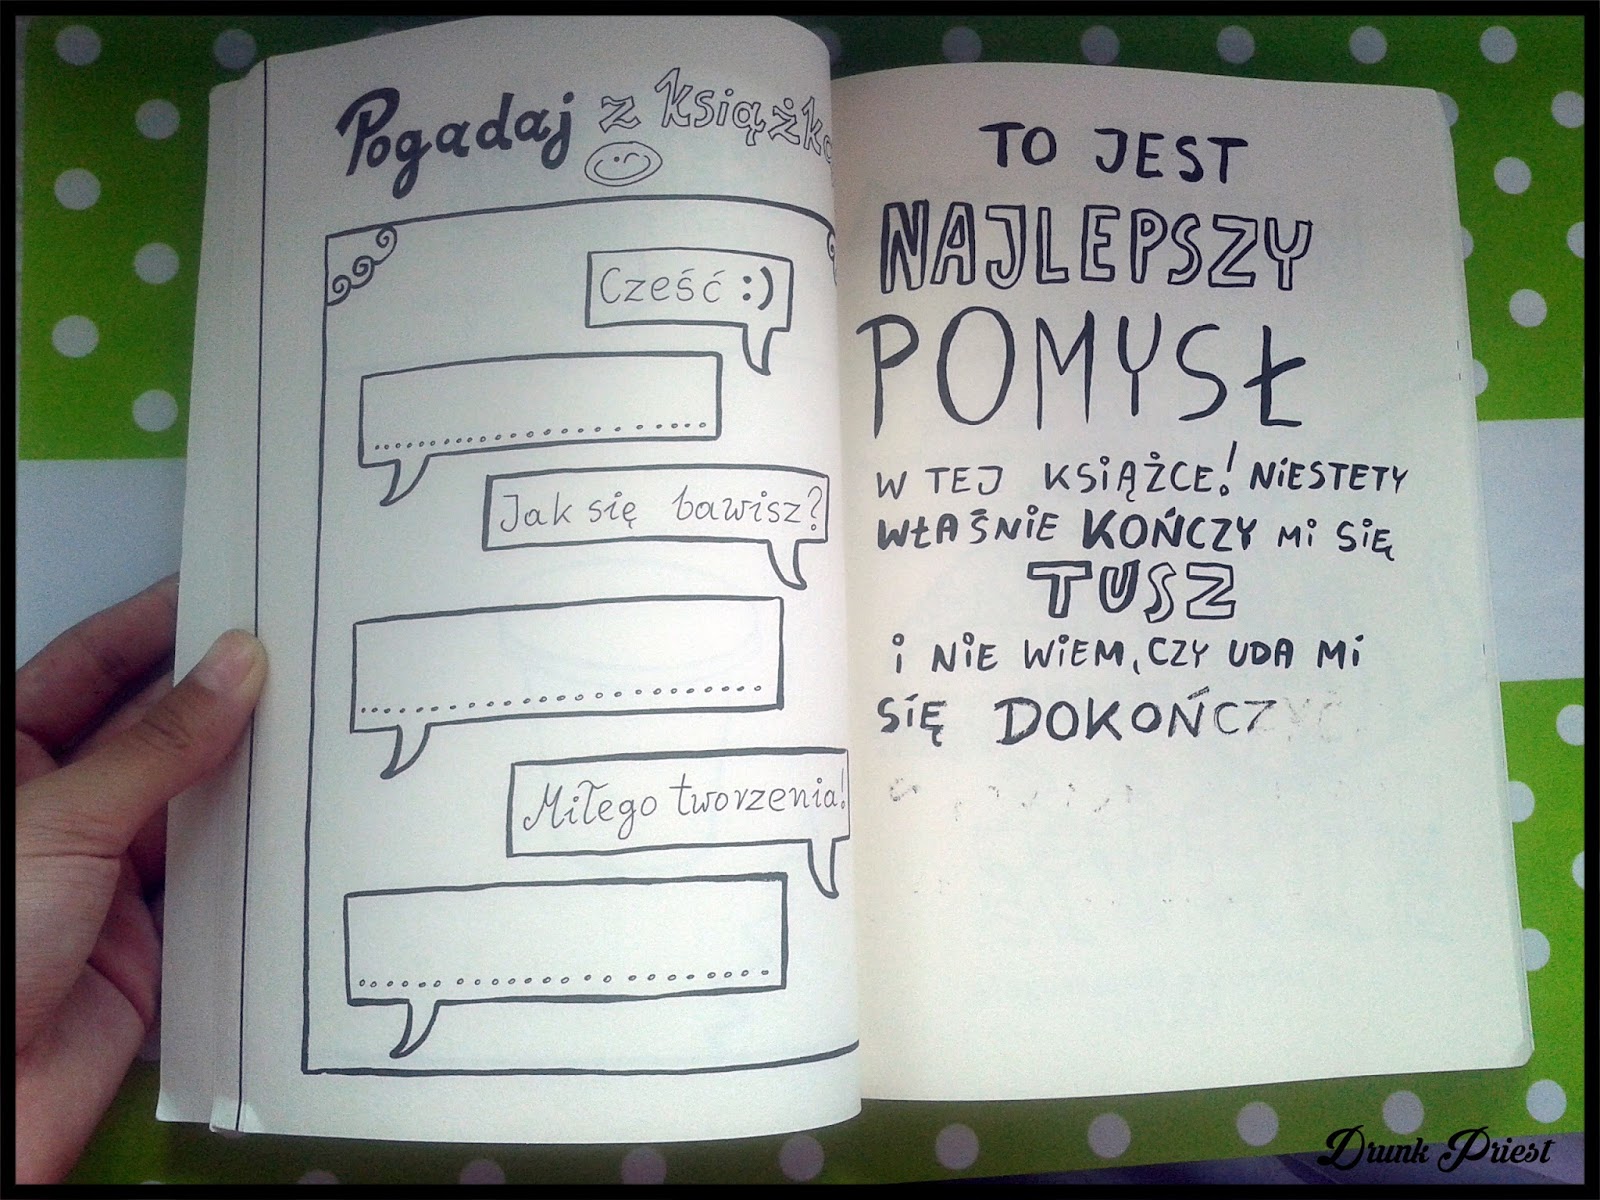 Pogadaj z książką
Cześć :)
Jak się bawisz?
Miłego tworzenia!
TO JEST
NAJLEPSZY
POMYSŁ
W TEJ KSIĄŻCE! NIESTETY
WŁAŚNIE KOŃCZY MI SIĘ
TUSZ
I NIE WIEM, CZY UDA MI
SIĘ DOKOŃCZYĆ
Drunk Priest